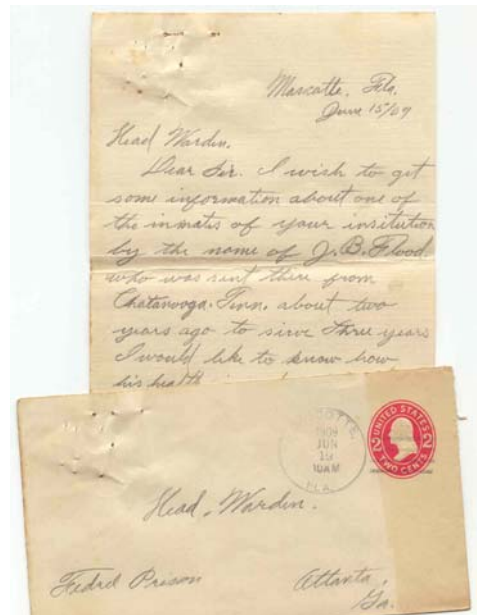 Mascotte, Fla.
June 15/09
Head Wardin.
Dear Sir. I wish to get
some information about one of
the inmates of your insitution
by the name of J. B. Flood.
who was sent there from
Chatanooga. Tenn. about two
years ago to sirve three years
I would like to know how
his health
1909
JUN
19
10AM
FLA.
UNITED STATES
2 2
TWO CENTS
Head, Wardin.
Fedrel Prison
Atlanta,
Ga.